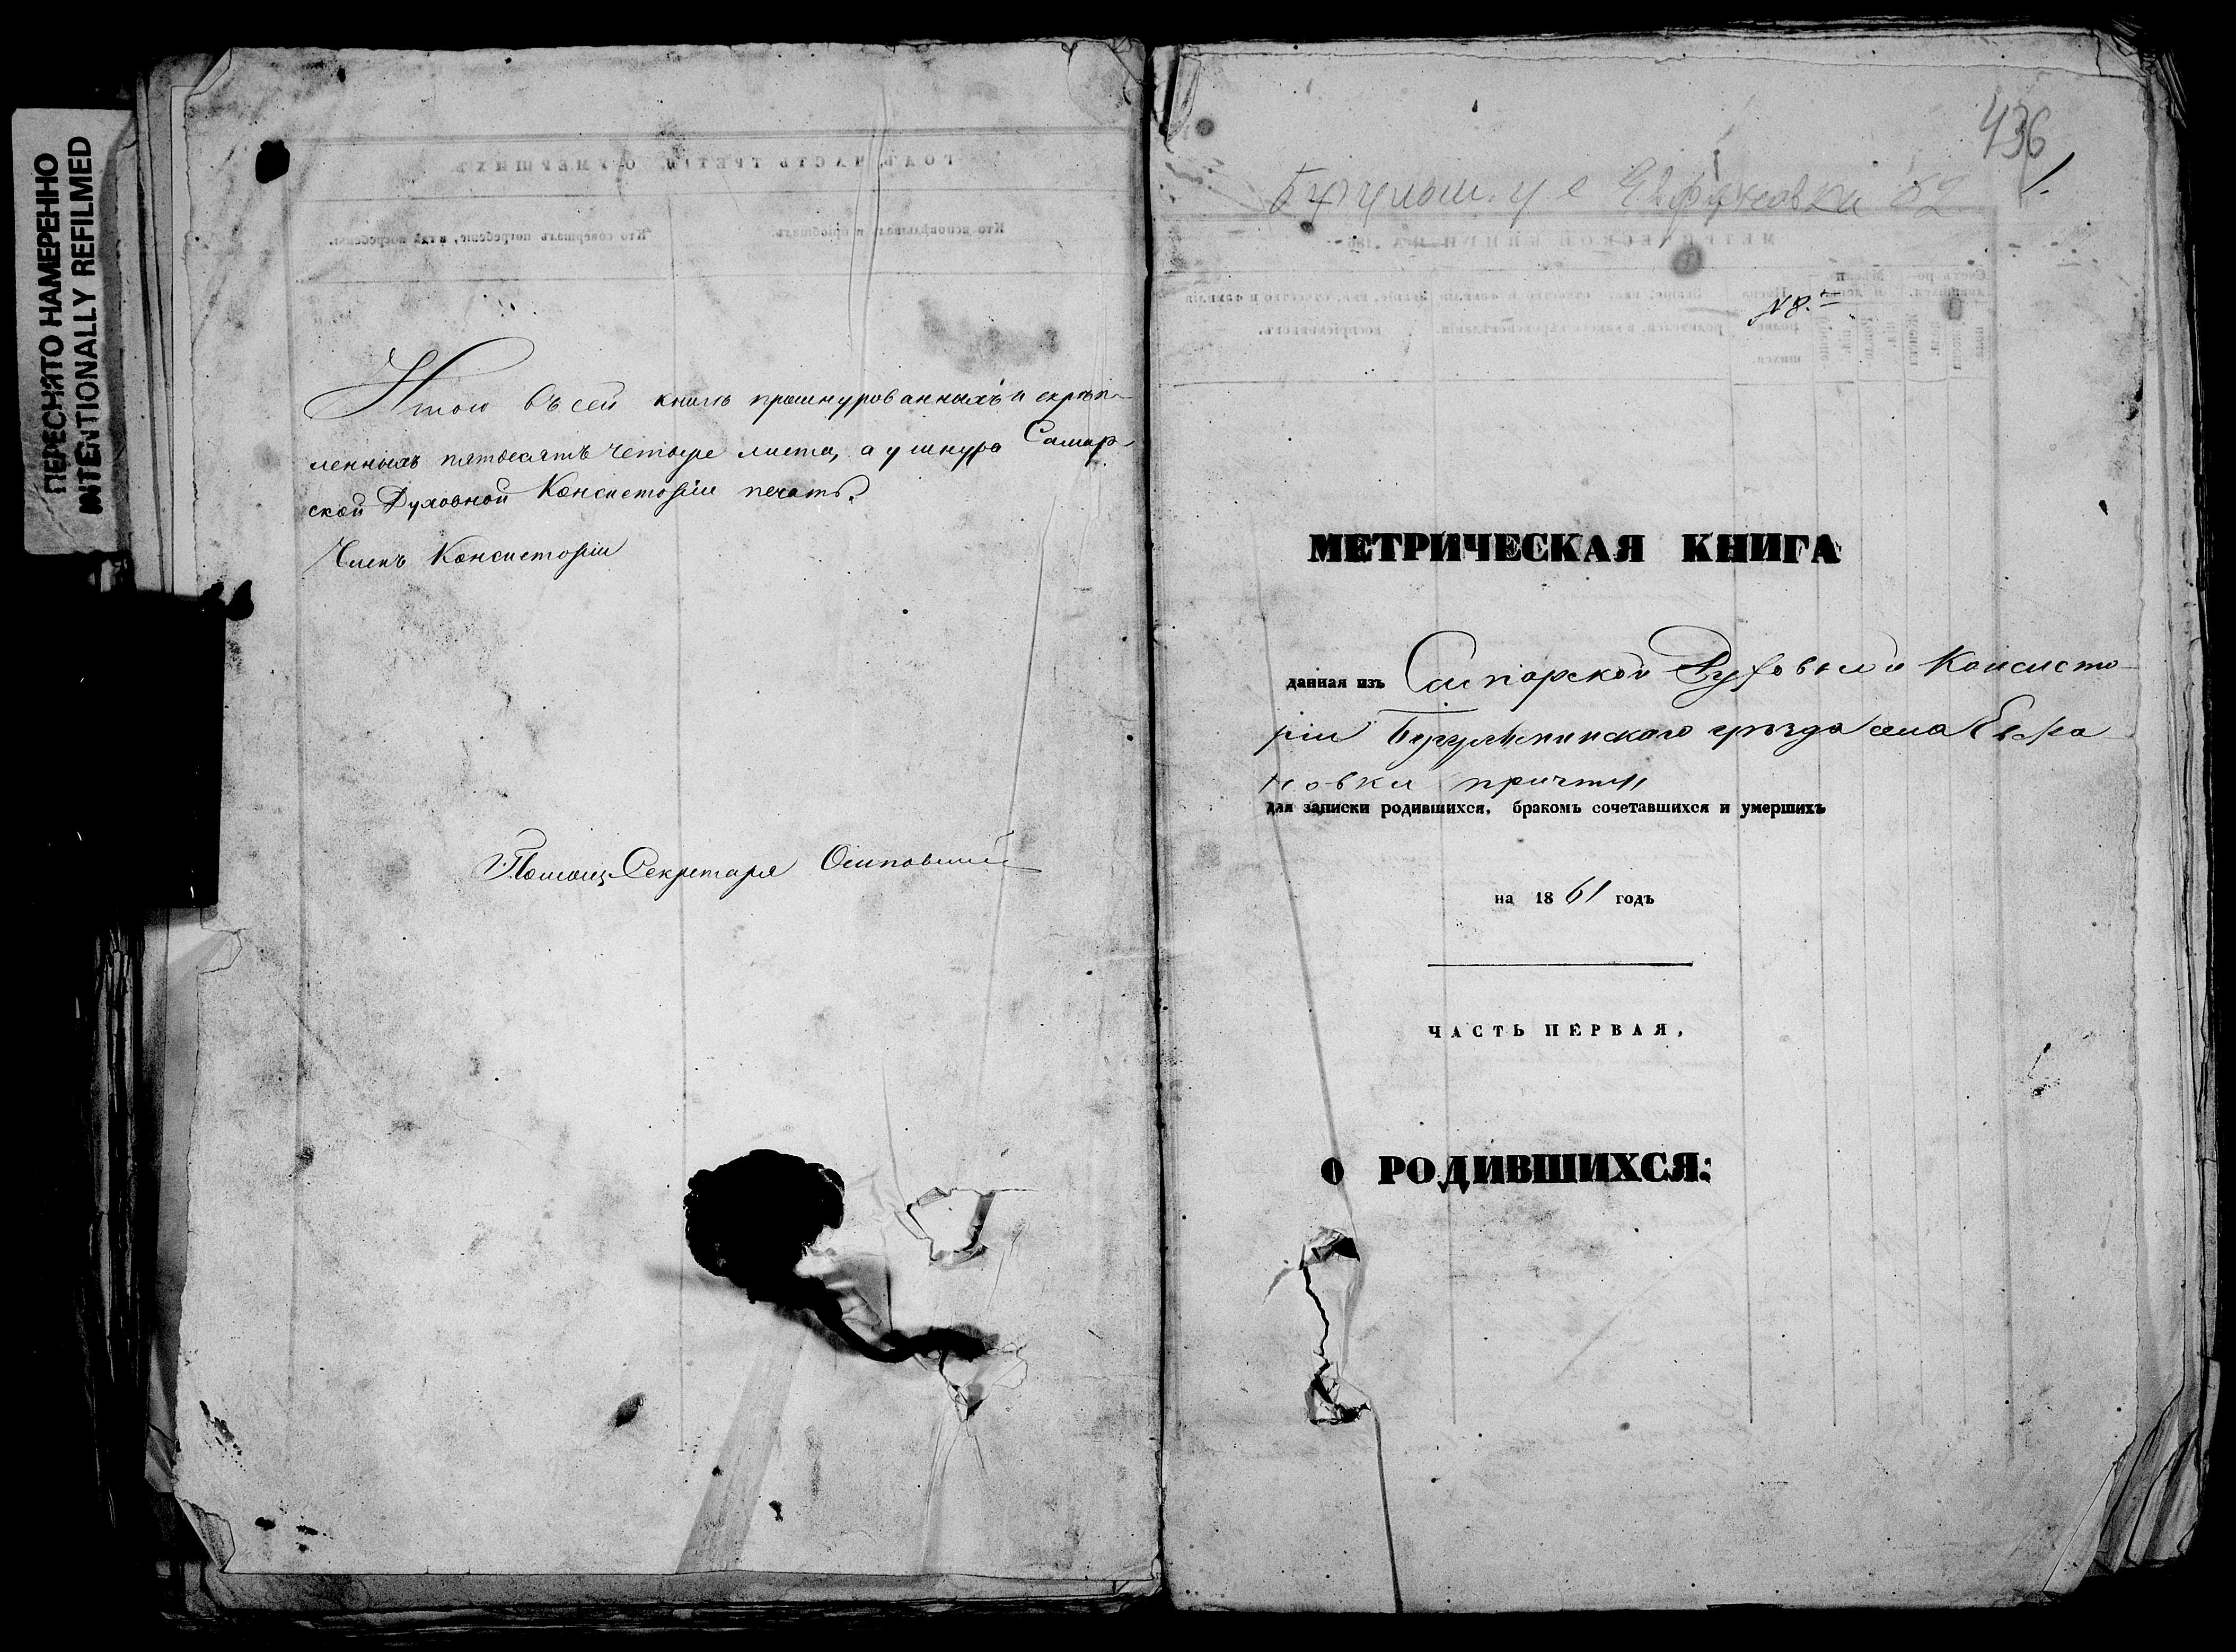 ПЕРЕСНЯТО НАМЕРЕННО
INTENTIONALLY REFILMED
Итого въ сей книгѣ прошнурованныхъ и скрѣп-
ленныхъ пятьдесятъ четыре листа, а у шнура Самар-
ской Духовной Консисторіи печать.
Членъ Консисторіи
Помощ. Секретаря Осиповскій
436
1.
Бугульм. у с
52
№ 8.
МЕТРИЧЕСКАЯ КНИГА
данная изъ Самарской Духовной Консисто-
ріи Бугульминскаго уѣзда села
новки причту
для записки родившихся, бракомъ сочетавшихся и умершихъ
на 1861 годъ
ЧАСТЬ ПЕРВАЯ,
О РОДИВШИХСЯ: